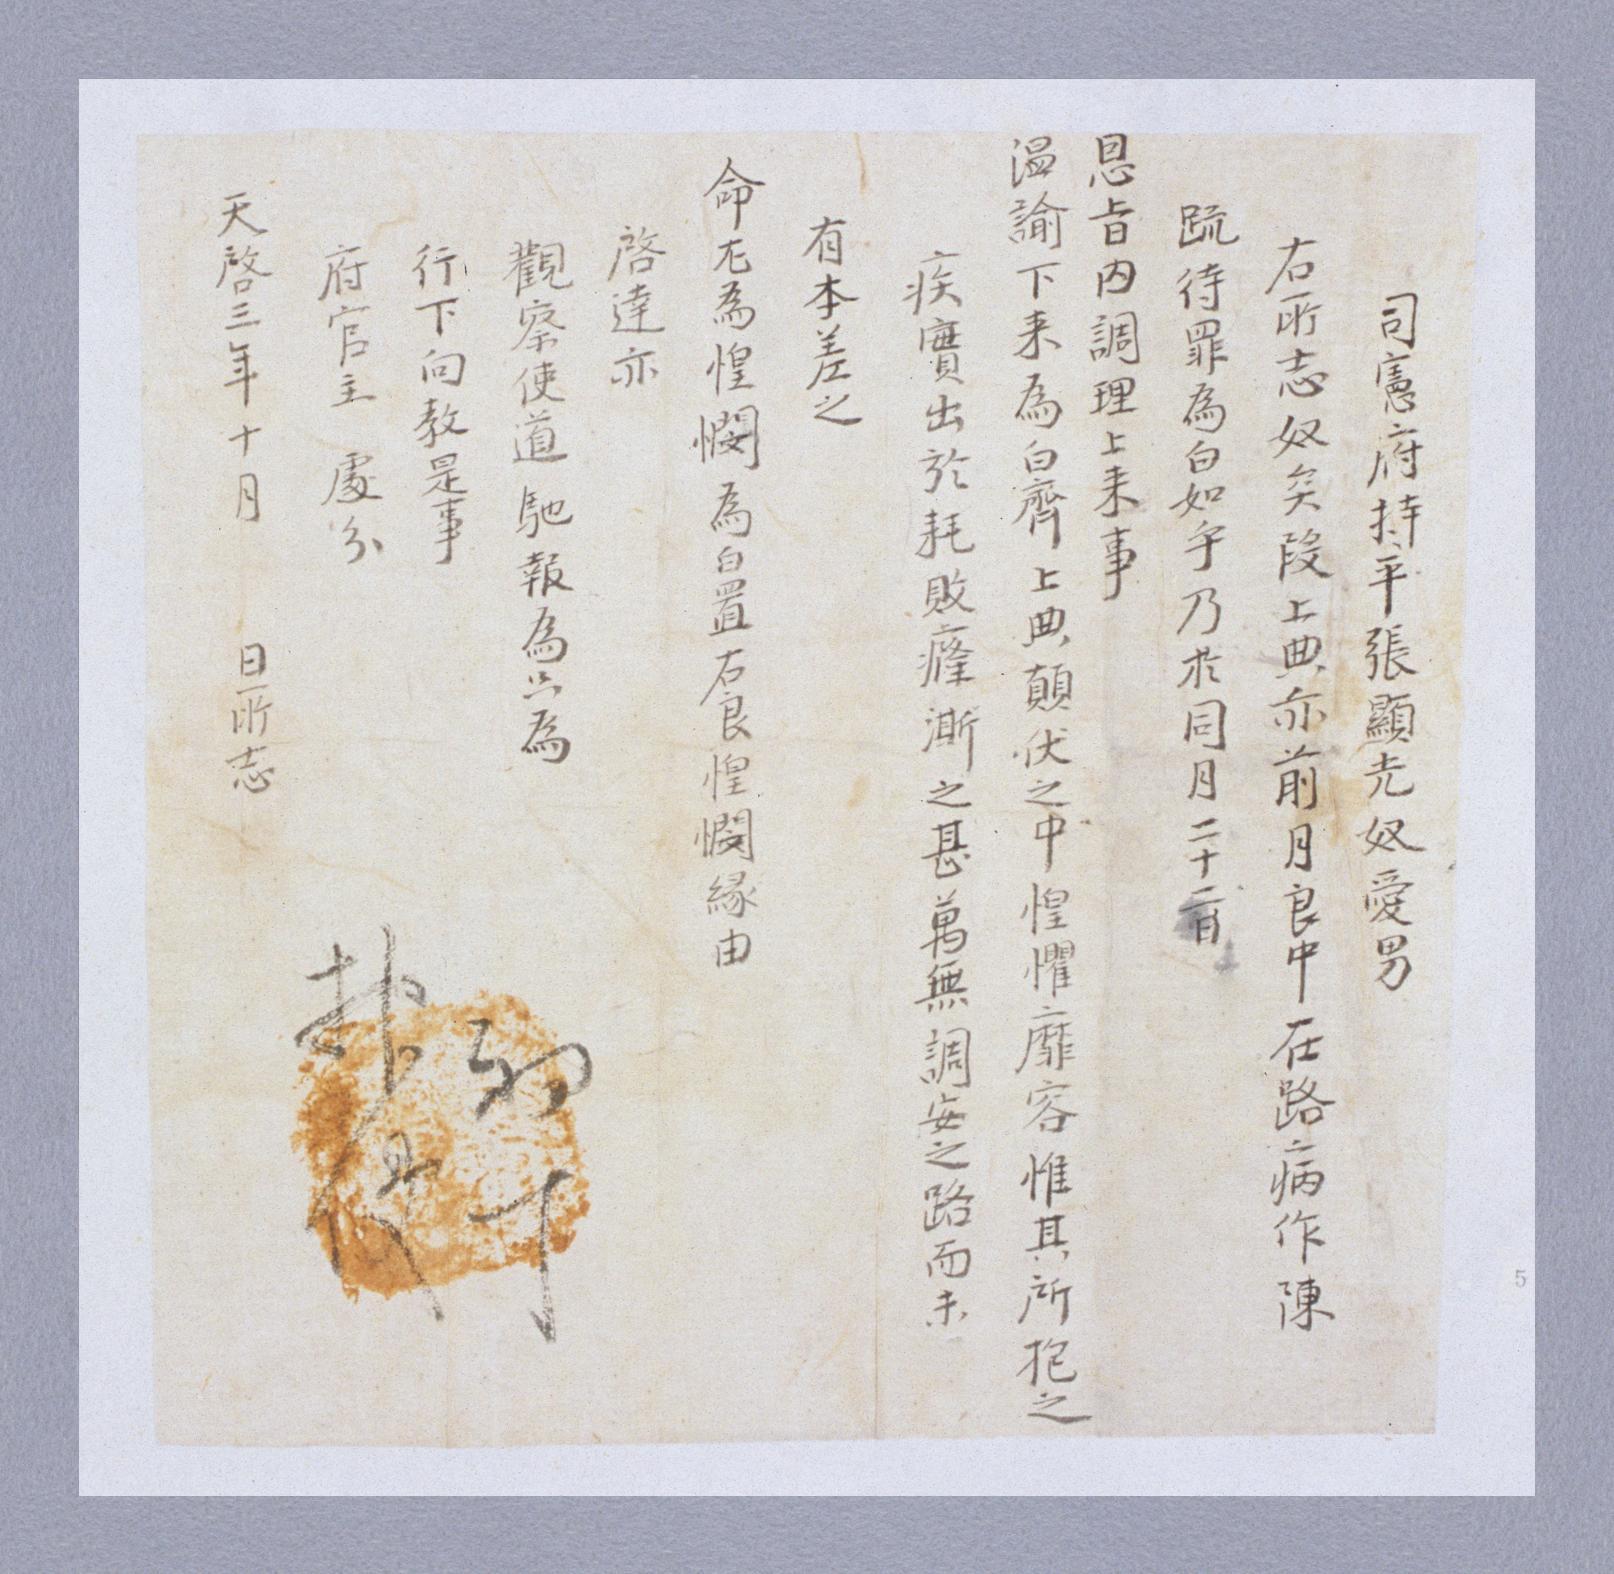 司憲府持平張顯光奴愛男
右所志奴矣段上典亦前月良中在路病作陳
疏待罪為白如乎乃於同月二十二日
恩旨內調理上来事
温諭下来為白齊上典顛伏之中惶懼靡容惟其所抱之
疾實出於耗敗癃澌之甚萬無調安之路而未
有本差之
命尤為惶憫為白置右良惶憫緣由
啓達亦
觀察使道馳報為只為
行下向教是事
府官主 處分
天啓三年十月 日所志
初十
5